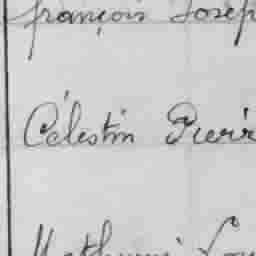 françois Josep
Célestin Pierr
Mathurin Lou